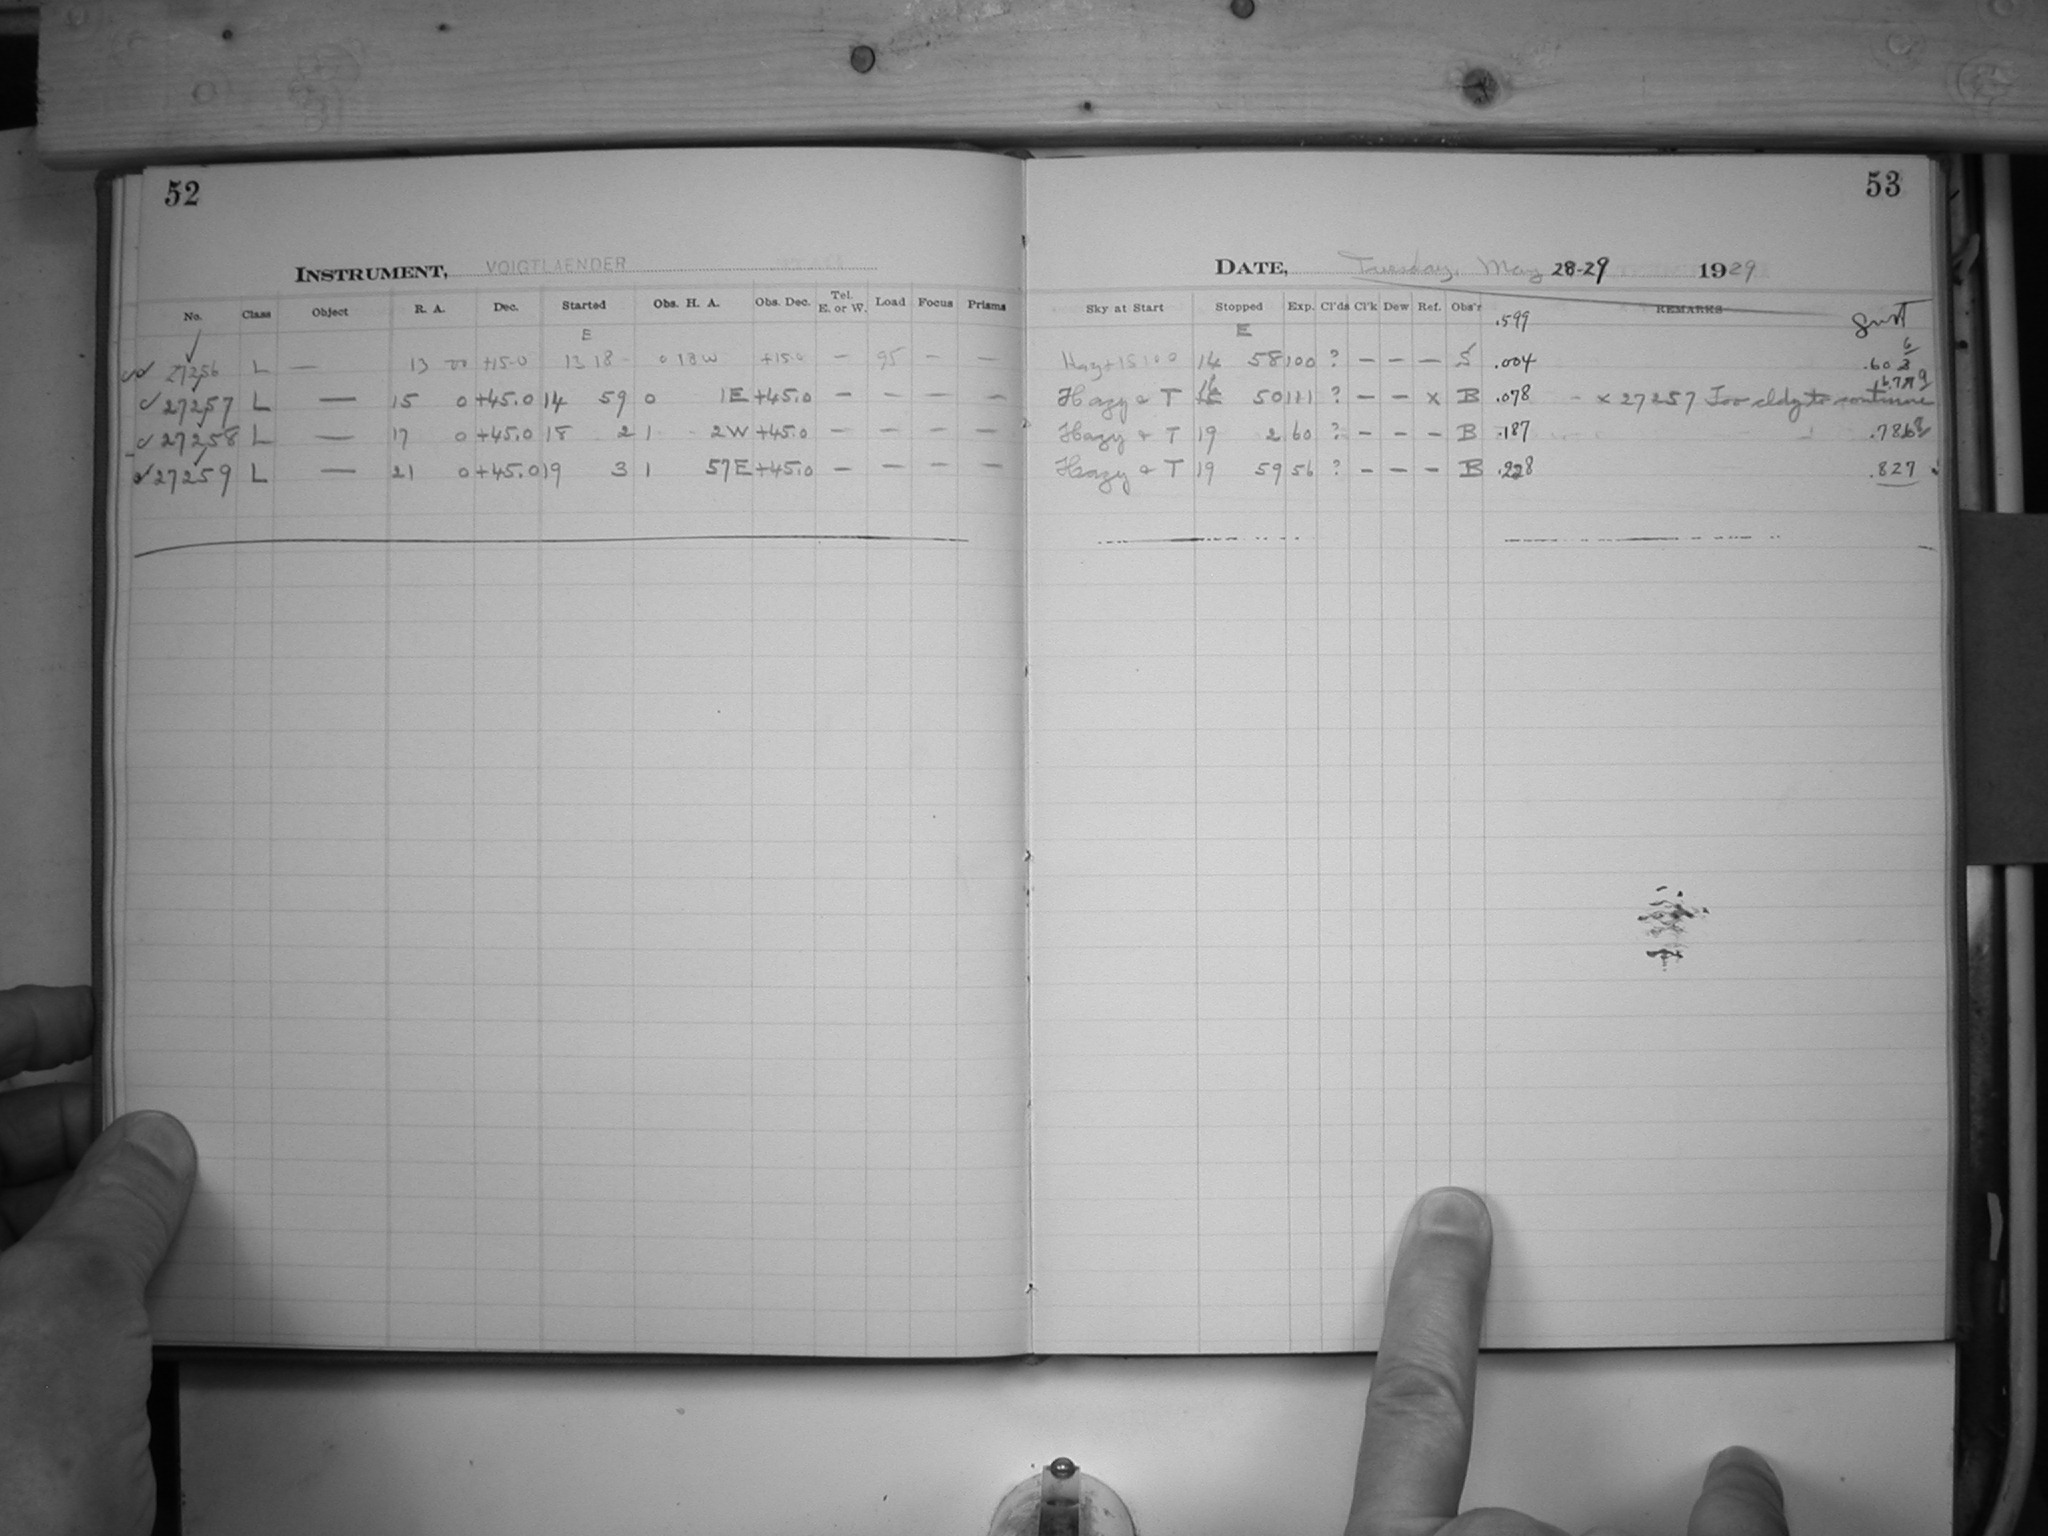 52
53
INSTRUMENT, VOIGTLAENDER
DATE, Tuesday, May 28-29 1929
No. Class Object R. A. Dec. Started Obs. H. A. Obs. Dec. Tel. E. or W. Load Focus Prisms
Sky at Start Stopped Exp. Cl'ds Cl'k Dew Ref. Obs'r REMARKS
E E .599
27256 L — 13 00 +15.0 13 18 0 18W +15.0 — 95 — — 14 58 100 ? — — — S .004
27257 L — 15 0 +45.0 14 59 0 1E +45.0 — — — — Hazy & T 50 111 ? — — x B .078 x 27257 Too cldy to continue
27258 L — 17 0 +45.0 18 2 1 2W +45.0 — — — — Hazy & T 19 2 60 ? — — — B .187
27259 L — 21 0 +45.0 19 3 1 57E +45.0 — — — — Hazy & T 19 59 56 ? — — — B .228 .827